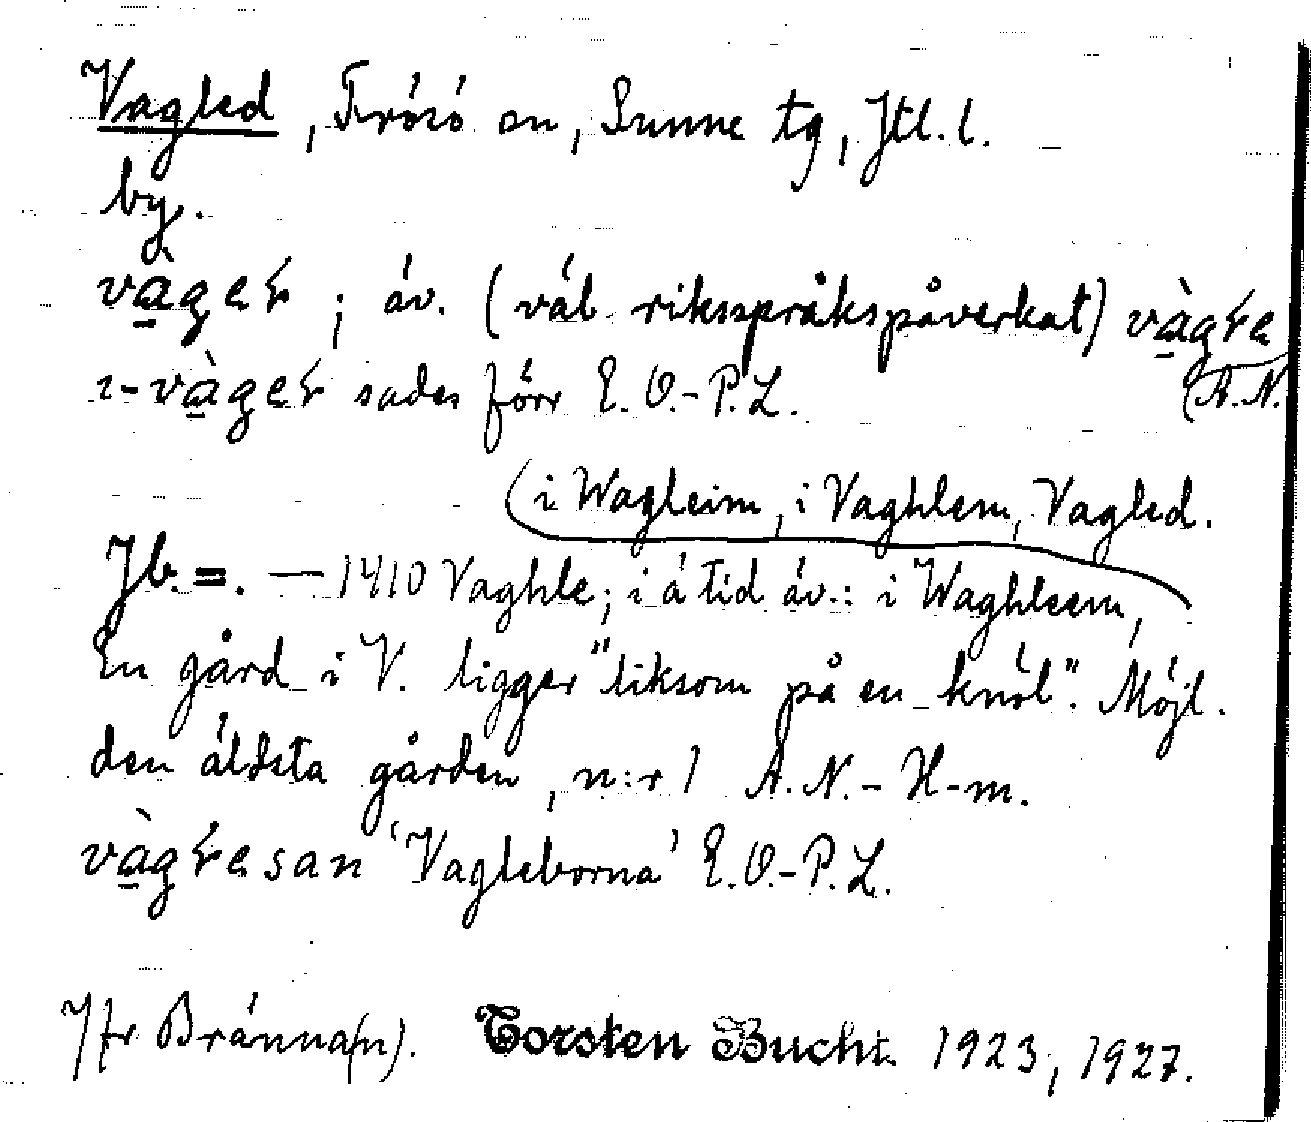 Vagled, Frösö sn, Sunne tg, Jtl. l.
by.
vàgeł; äv. (väl riksspråkspåverkat) vàgłe
ı-vàgeł sades förr E.O.-P.L. (A.N.
(i Wagleim, i Vaghlem, Vagled.
Jb. =. — 1410 Vaghle; i ä tid äv.: i Waghleem,
En gård i V. ligger "liksom på en knöl". Möjl.
den äldsta gården, n:r 1 A.N.-H-m.
vàgłesan 'Vagleborna' E.O.-P.L.
Jfr Bränna(n). Torsten Bucht. 1923, 1927.